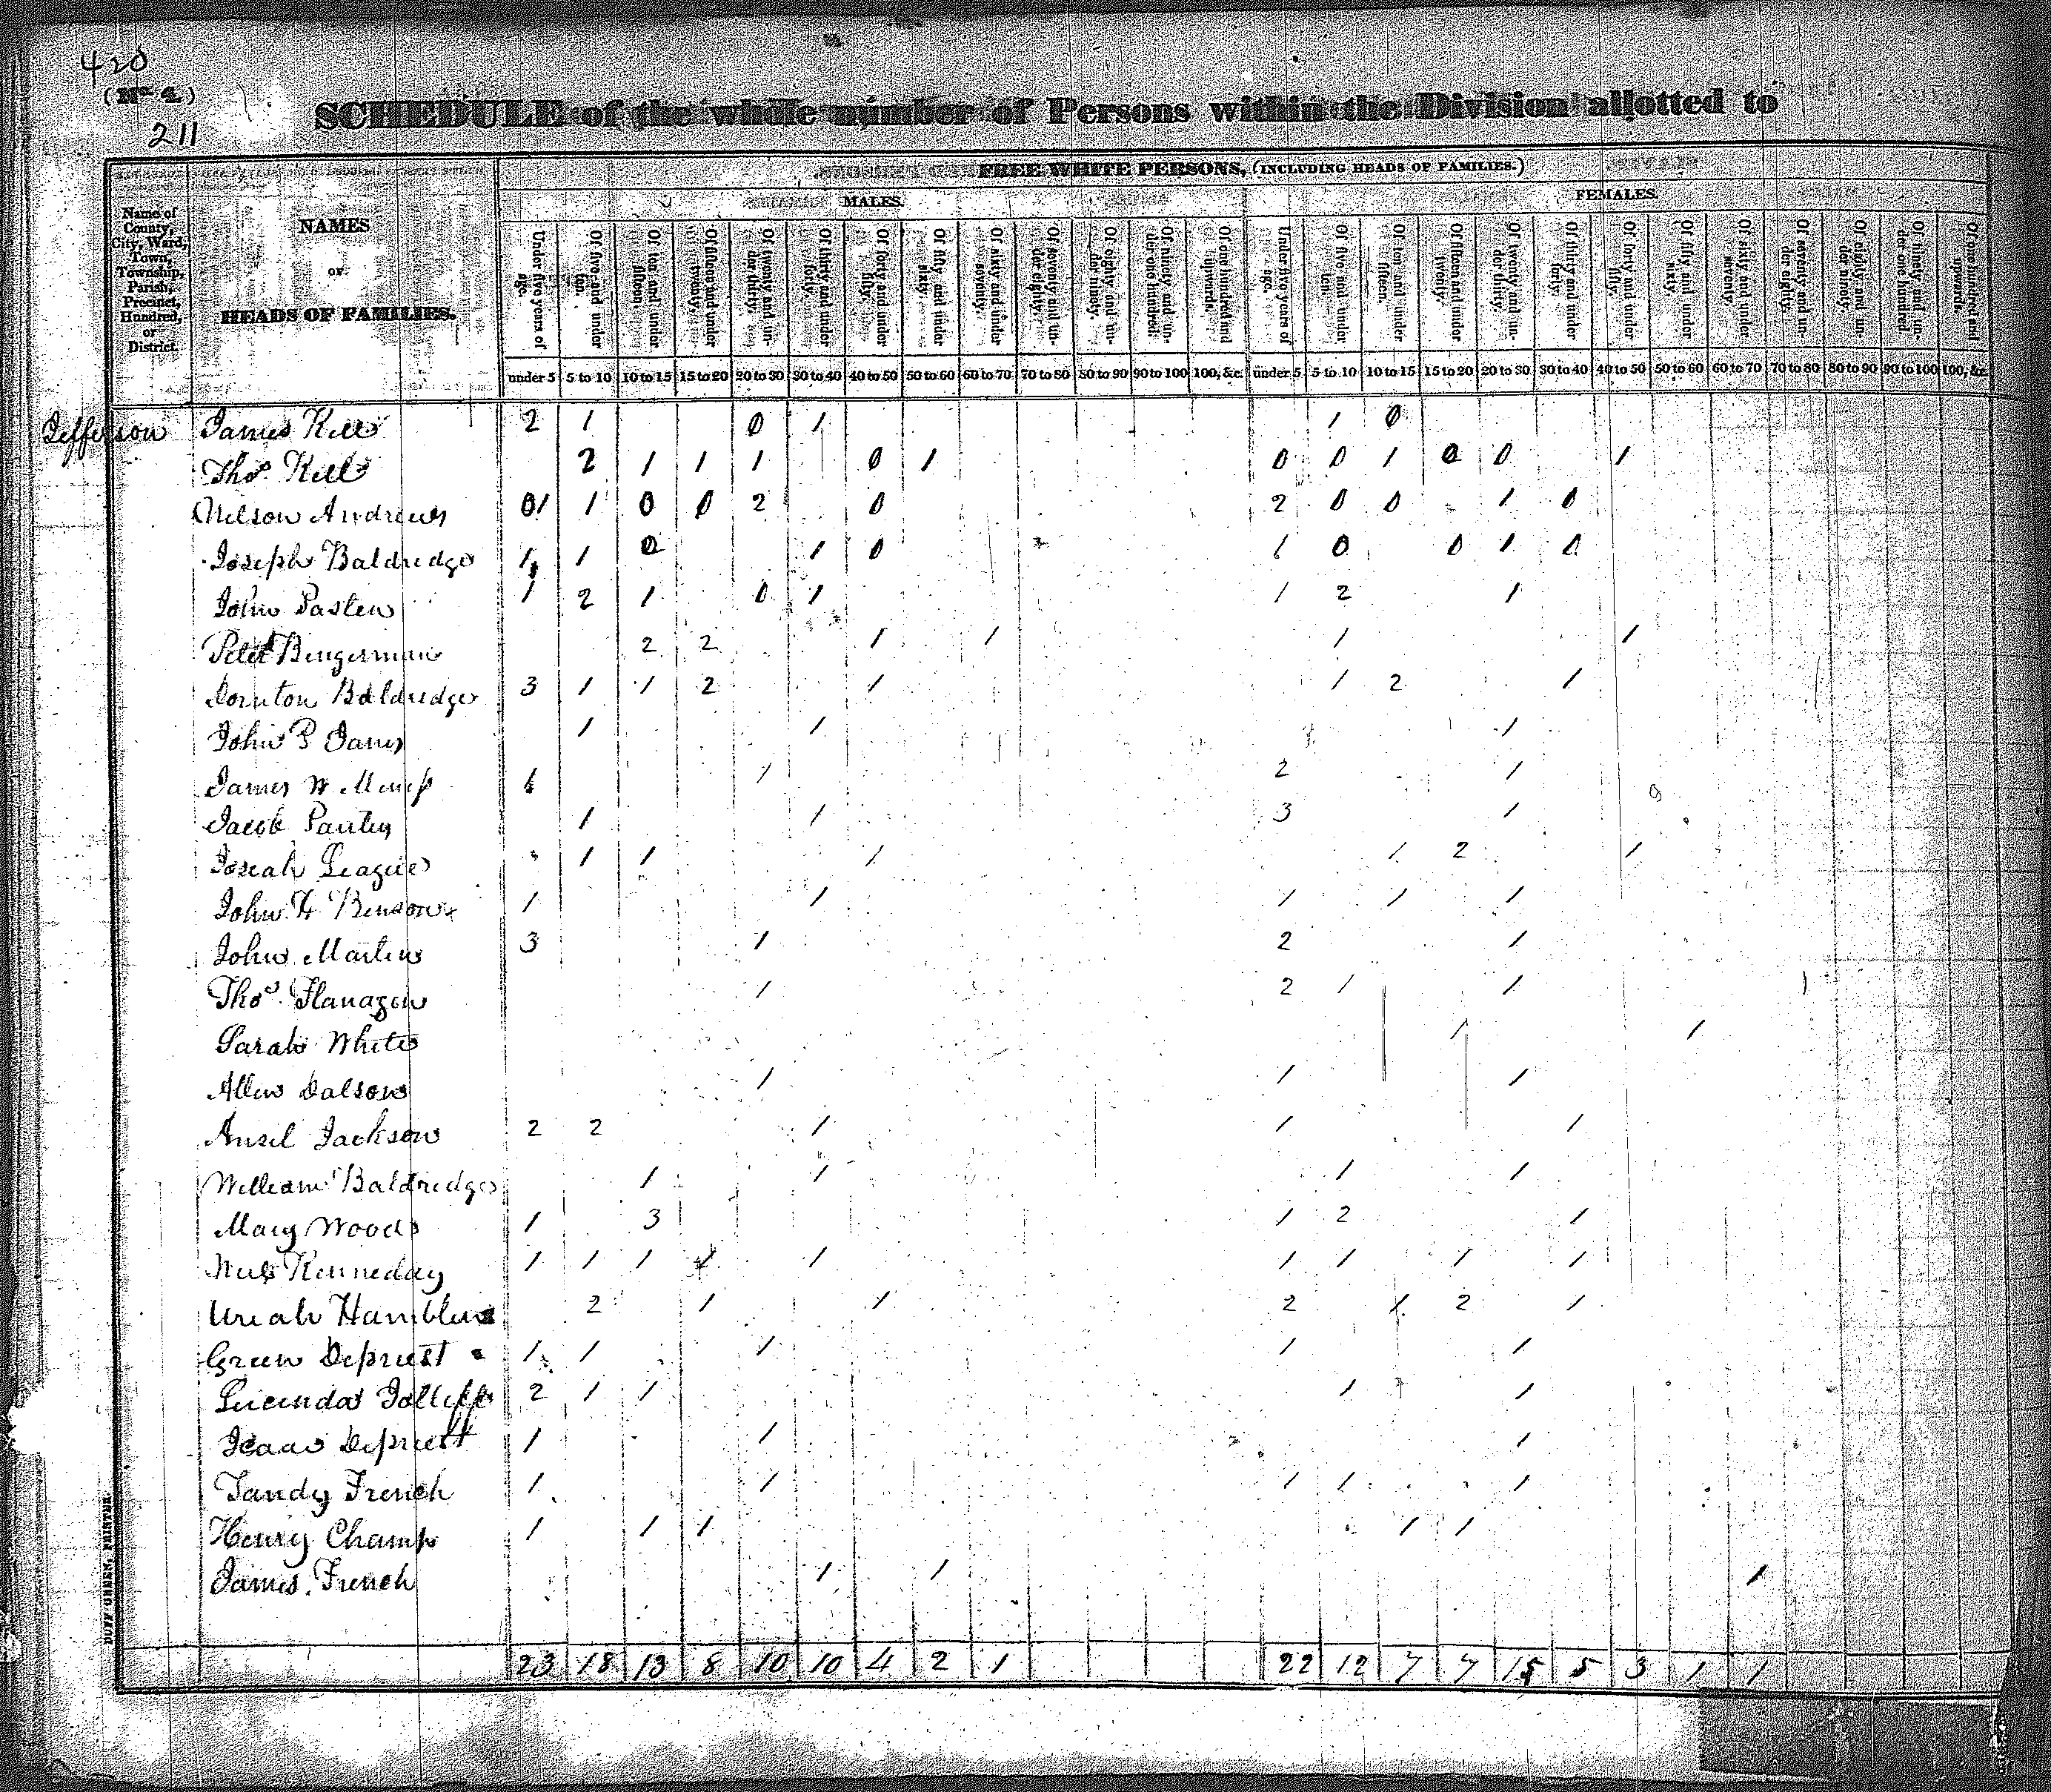 420
(No 4)
211
SCHEDULE of the whole number of Persons within the Division allotted to
FREE WHITE PERSONS, (INCLUDING HEADS OF FAMILIES.)
MALES. FEMALES.
Name of County, City, Ward, Town, Township, Parish, Precinct, Hundred, or District.
NAMES
OF
HEADS OF FAMILIES.
Under five years of age. Of five and under ten. Of ten and under fifteen. Of fifteen and under twenty. Of twenty and under thirty. Of thirty and under forty. Of forty and under fifty. Of fifty and under sixty. Of sixty and under seventy. Of seventy and under eighty. Of eighty and under ninety. Of ninety and under one hundred. Of one hundred and upwards. Under five years of age. Of five and under ten. Of ten and under fifteen. Of fifteen and under twenty. Of twenty and under thirty. Of thirty and under forty. Of forty and under fifty. Of fifty and under sixty. Of sixty and under seventy. Of seventy and under eighty. Of eighty and under ninety. Of ninety and under one hundred Of one hundred and upwards.
under 5 5 to 10 10 to 15 15 to 20 20 to 30 30 to 40 40 to 50 50 to 60 60 to 70 70 to 80 80 to 90 90 to 100 100, &c. under 5 5 to 10 10 to 15 15 to 20 20 to 30 30 to 40 40 to 50 50 to 60 60 to 70 70 to 80 80 to 90 90 to 100 100, &c.
Jefferson James 2 1 0 1 1 0
Thos 2 1 1 1 0 1 0 0 1 0 0 1
Nelson Andrews 01 1 0 0 2 0 2 0 0 1 0
Joseph Baldredge 1 1 0 1 0 1 0 0 1 0
John 1 2 1 0 1 1 2 1
Peter Bingerman 2 2 1 1 1 1
Dornton Baldredge 3 1 1 2 1 1 2 1
John P 1 1 1
James W 1 2 1
Jacob 1 1 3 1
Josiah League 1 1 1 1 2 1
John H Benson 1 1 1 1 1
John Martin 3 1 2 1
Thos Flanagen 1 2 1 1
Sarah White 1 1
Allen Dalson 1 1 1
Ansel Jackson 2 2 1 1 1
William Baldredge 1 1 1 1
Mary Woods 1 3 1 2 1
Kenneday 1 1 1 1 1 1 1 1 1
Uriah Hamblen 2 1 1 2 1 2 1
Green Depriest 1 1 1 1 1
Lucinda Jolleff 2 1 1 1 1
Isaac Depriest 1 1 1
Tandy French 1 1 1 1 1
Henry Champ 1 1 1 1 1
James French 1 1 1
23 18 13 8 10 10 4 2 1 22 12 7 7 15 5 3 1 1
DUFF GREEN, PRINTER